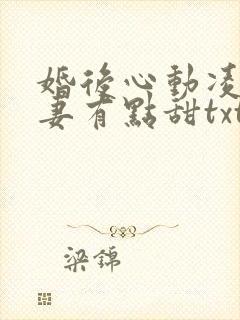 婚後心動凌
妻有點甜txt
梁錦